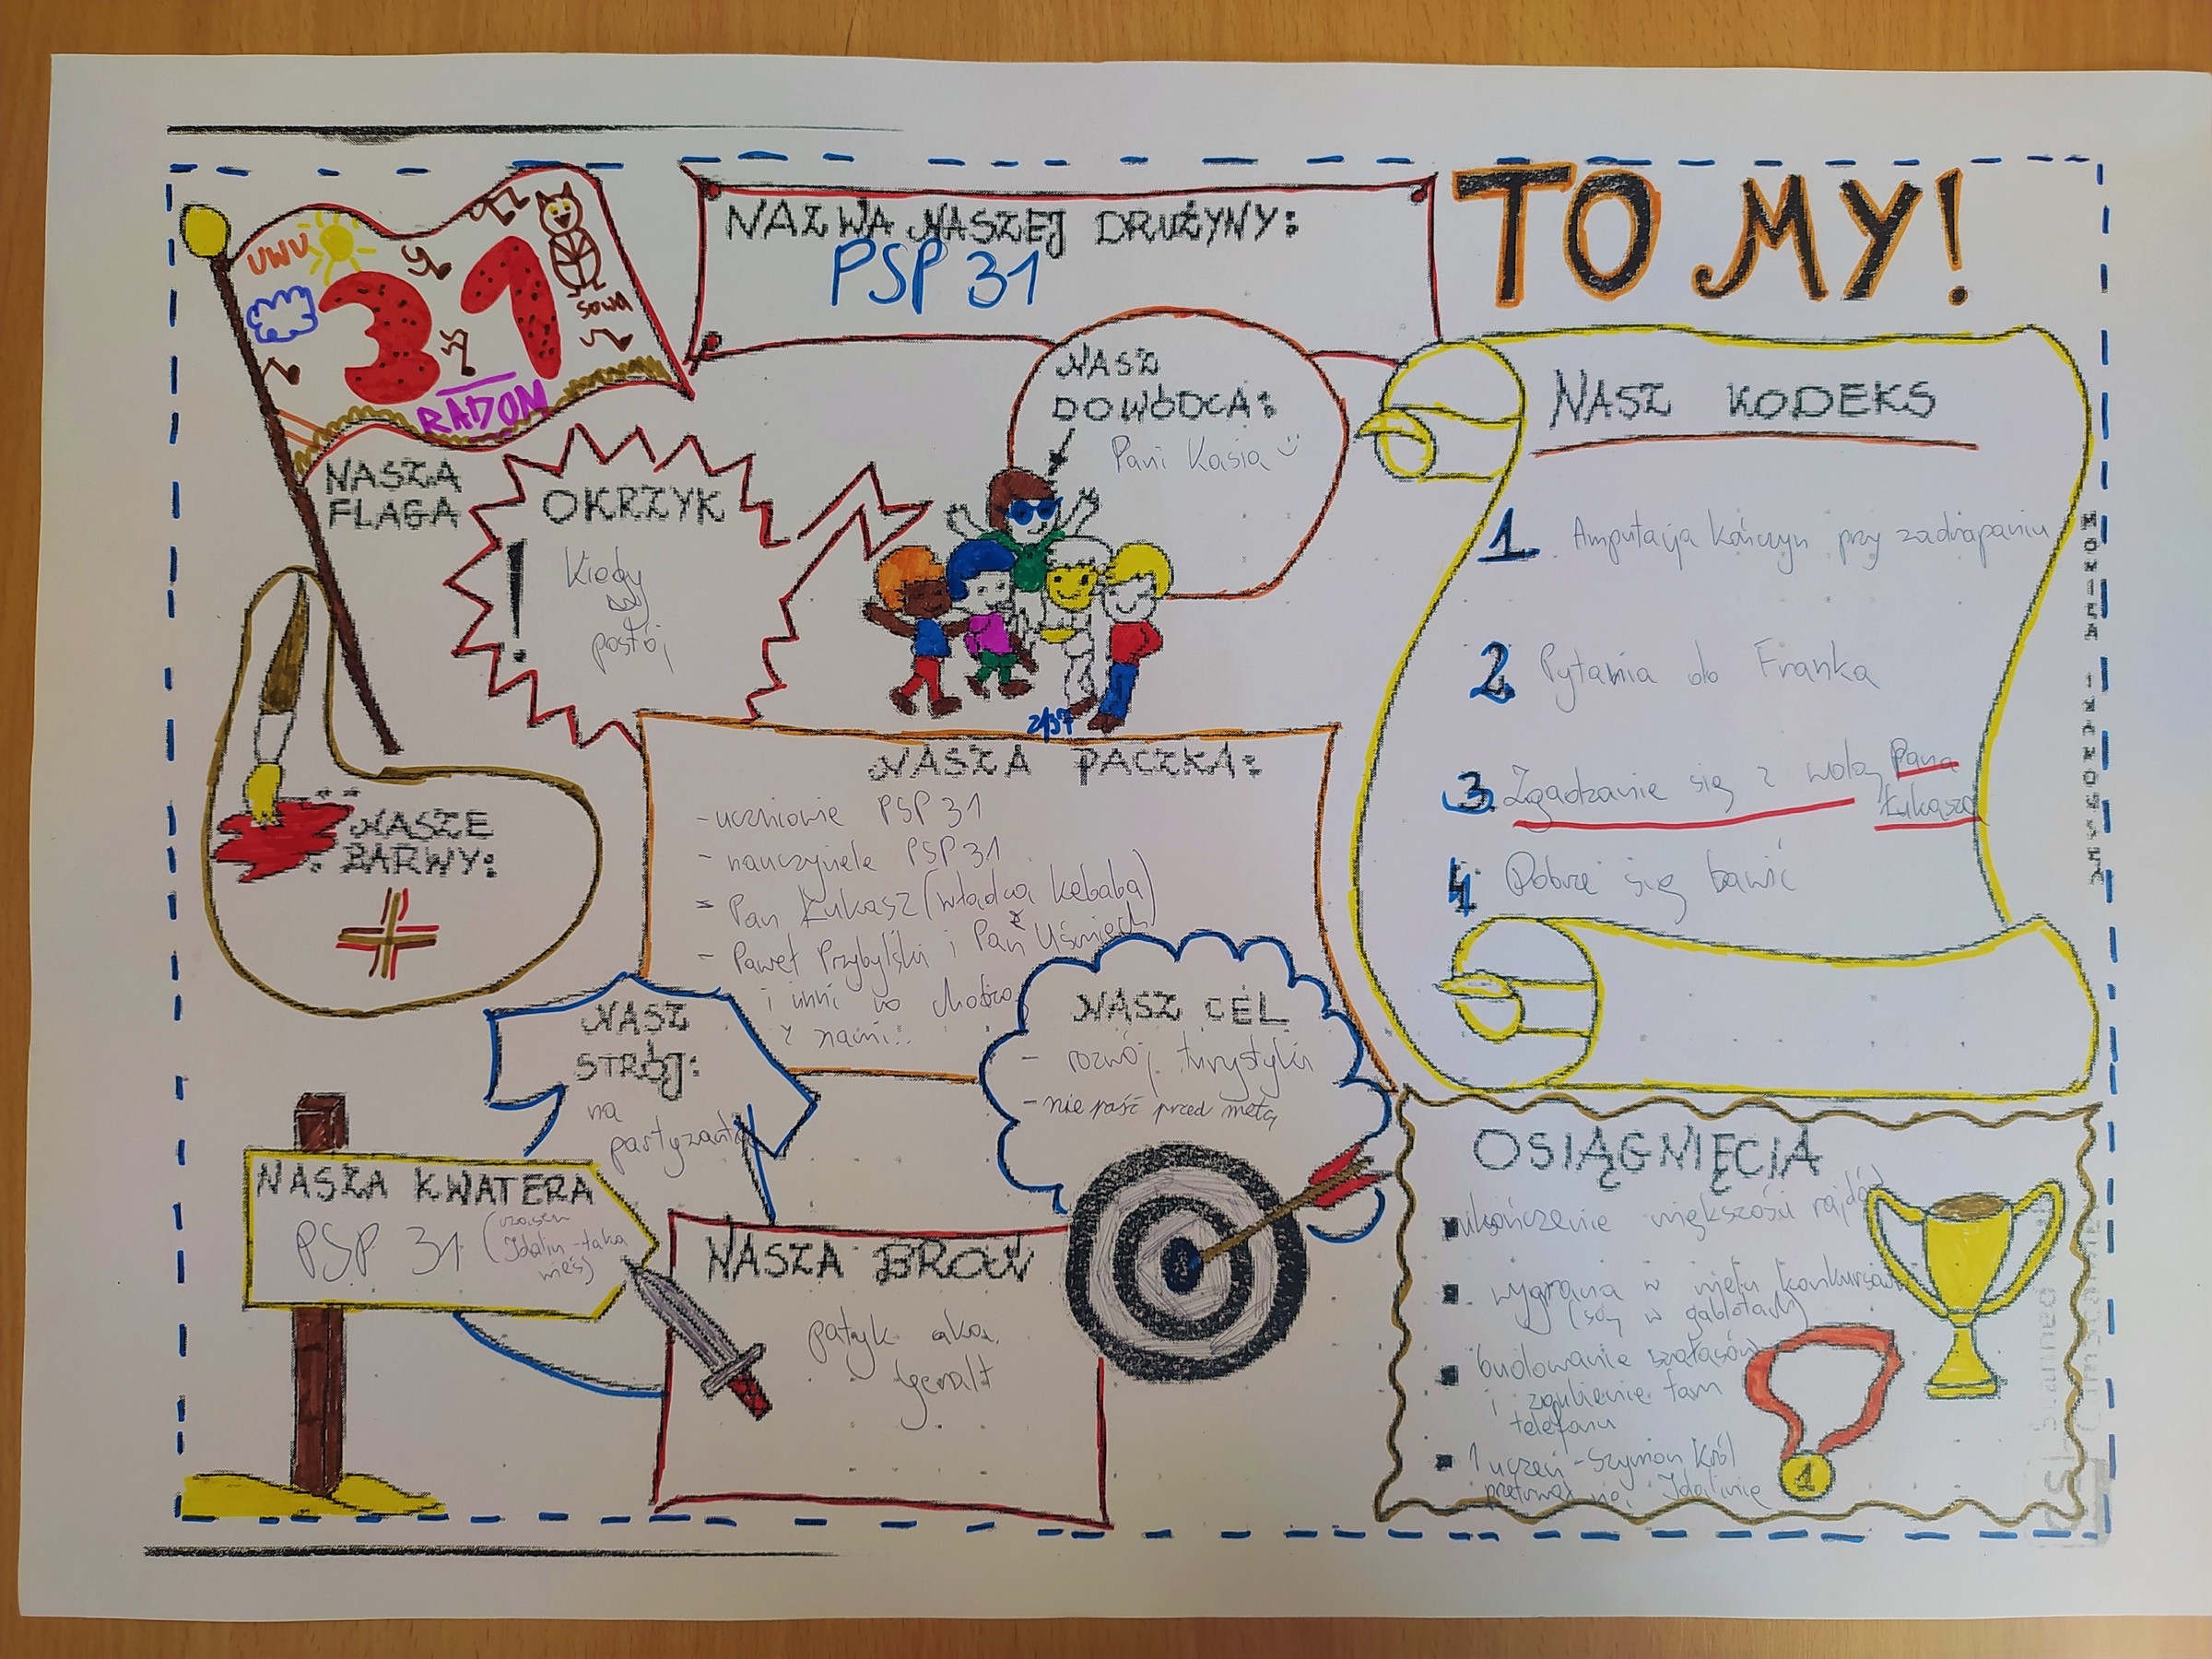 UWU
31
SOWA
RADOM
NASZA
FLAGA
NAZWA NASZEJ DRUŻYNY:
PSP 31
TO MY!
NASZ
DOWÓDCA:
Pani Kasia
OKRZYK
!
Kiedy
postój
NASZE
BARWY:
2137
NASZA PACZKA:
- uczniowie PSP 31
- nauczyciele PSP 31
- Pan Łukasz (władca kebaba)
- Paweł Przybylski i Pan Uśmiech
i inni co chodzą
z nami..
NASZ KODEKS
1 Amputacja kończyn przy zadrapaniu
2 Pytania do Franka
3. Zgadzanie się z wolą Pana
Łukasza
4 Dobrze się bawić
MONIKA IWANOWSKA
NASZ
STRÓJ:
na
partyzanta
NASZ CEL
- rozwój turystyki
- nie paść przed metą
NASZA KWATERA
PSP 31 (czasem
Idalin - taka
wieś)
NASZA BROŃ
patyk aka.
Geralt
OSIĄGNIĘCIA
ukończenie większości rajdów
wygrana w wielu konkursach
(są w gablotach)
budowanie szałasów
i zgubienie tam
telefonu
1 uczeń - Szymon Król
przetrwał na Idalinie
1